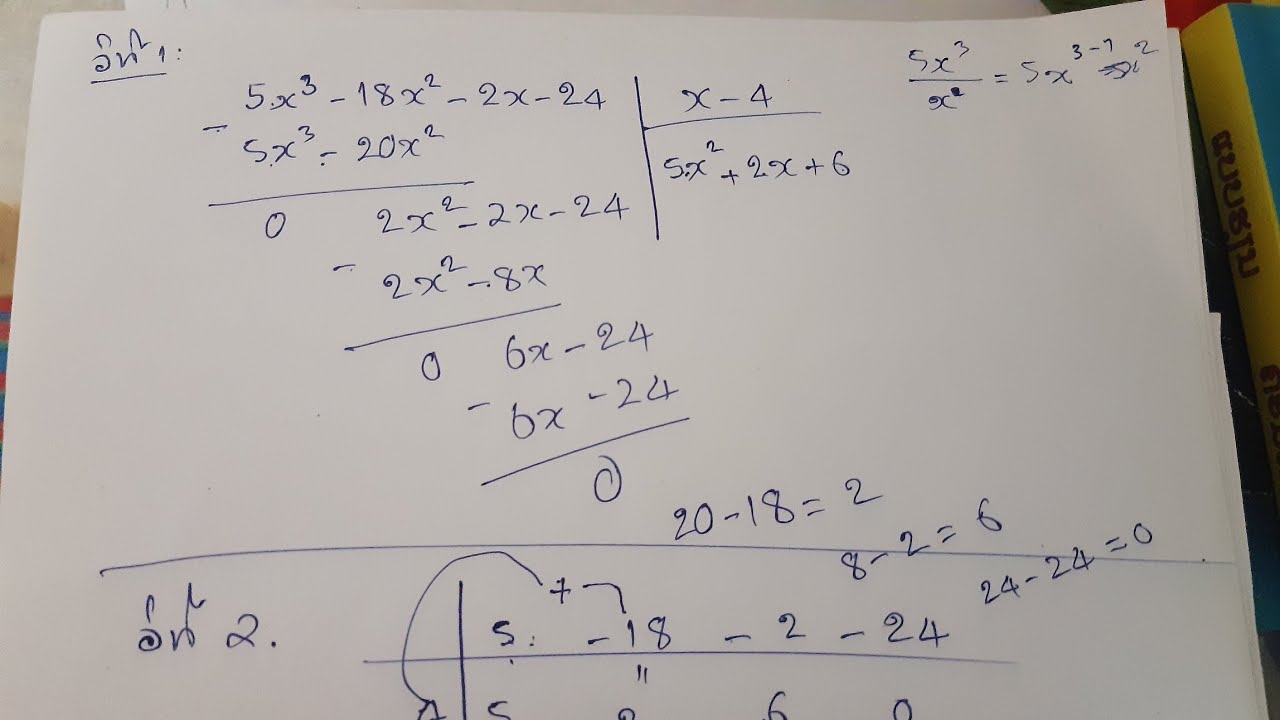 ວິທີ 1:
5x³ - 18x² - 2x - 24 | x - 4
- 5x³ - 20x² | 5x² + 2x + 6
0 2x² - 2x - 24
- 2x² - 8x
0 6x - 24
- 6x - 24
0
5x³/x = 5x³⁻¹
20 - 18 = 2
8 - 2 = 6
24 - 24 = 0
ວິທີ 2.
+
5 -18 -2 -24
"
4 5 2 6 0
ແບບຮຽນ